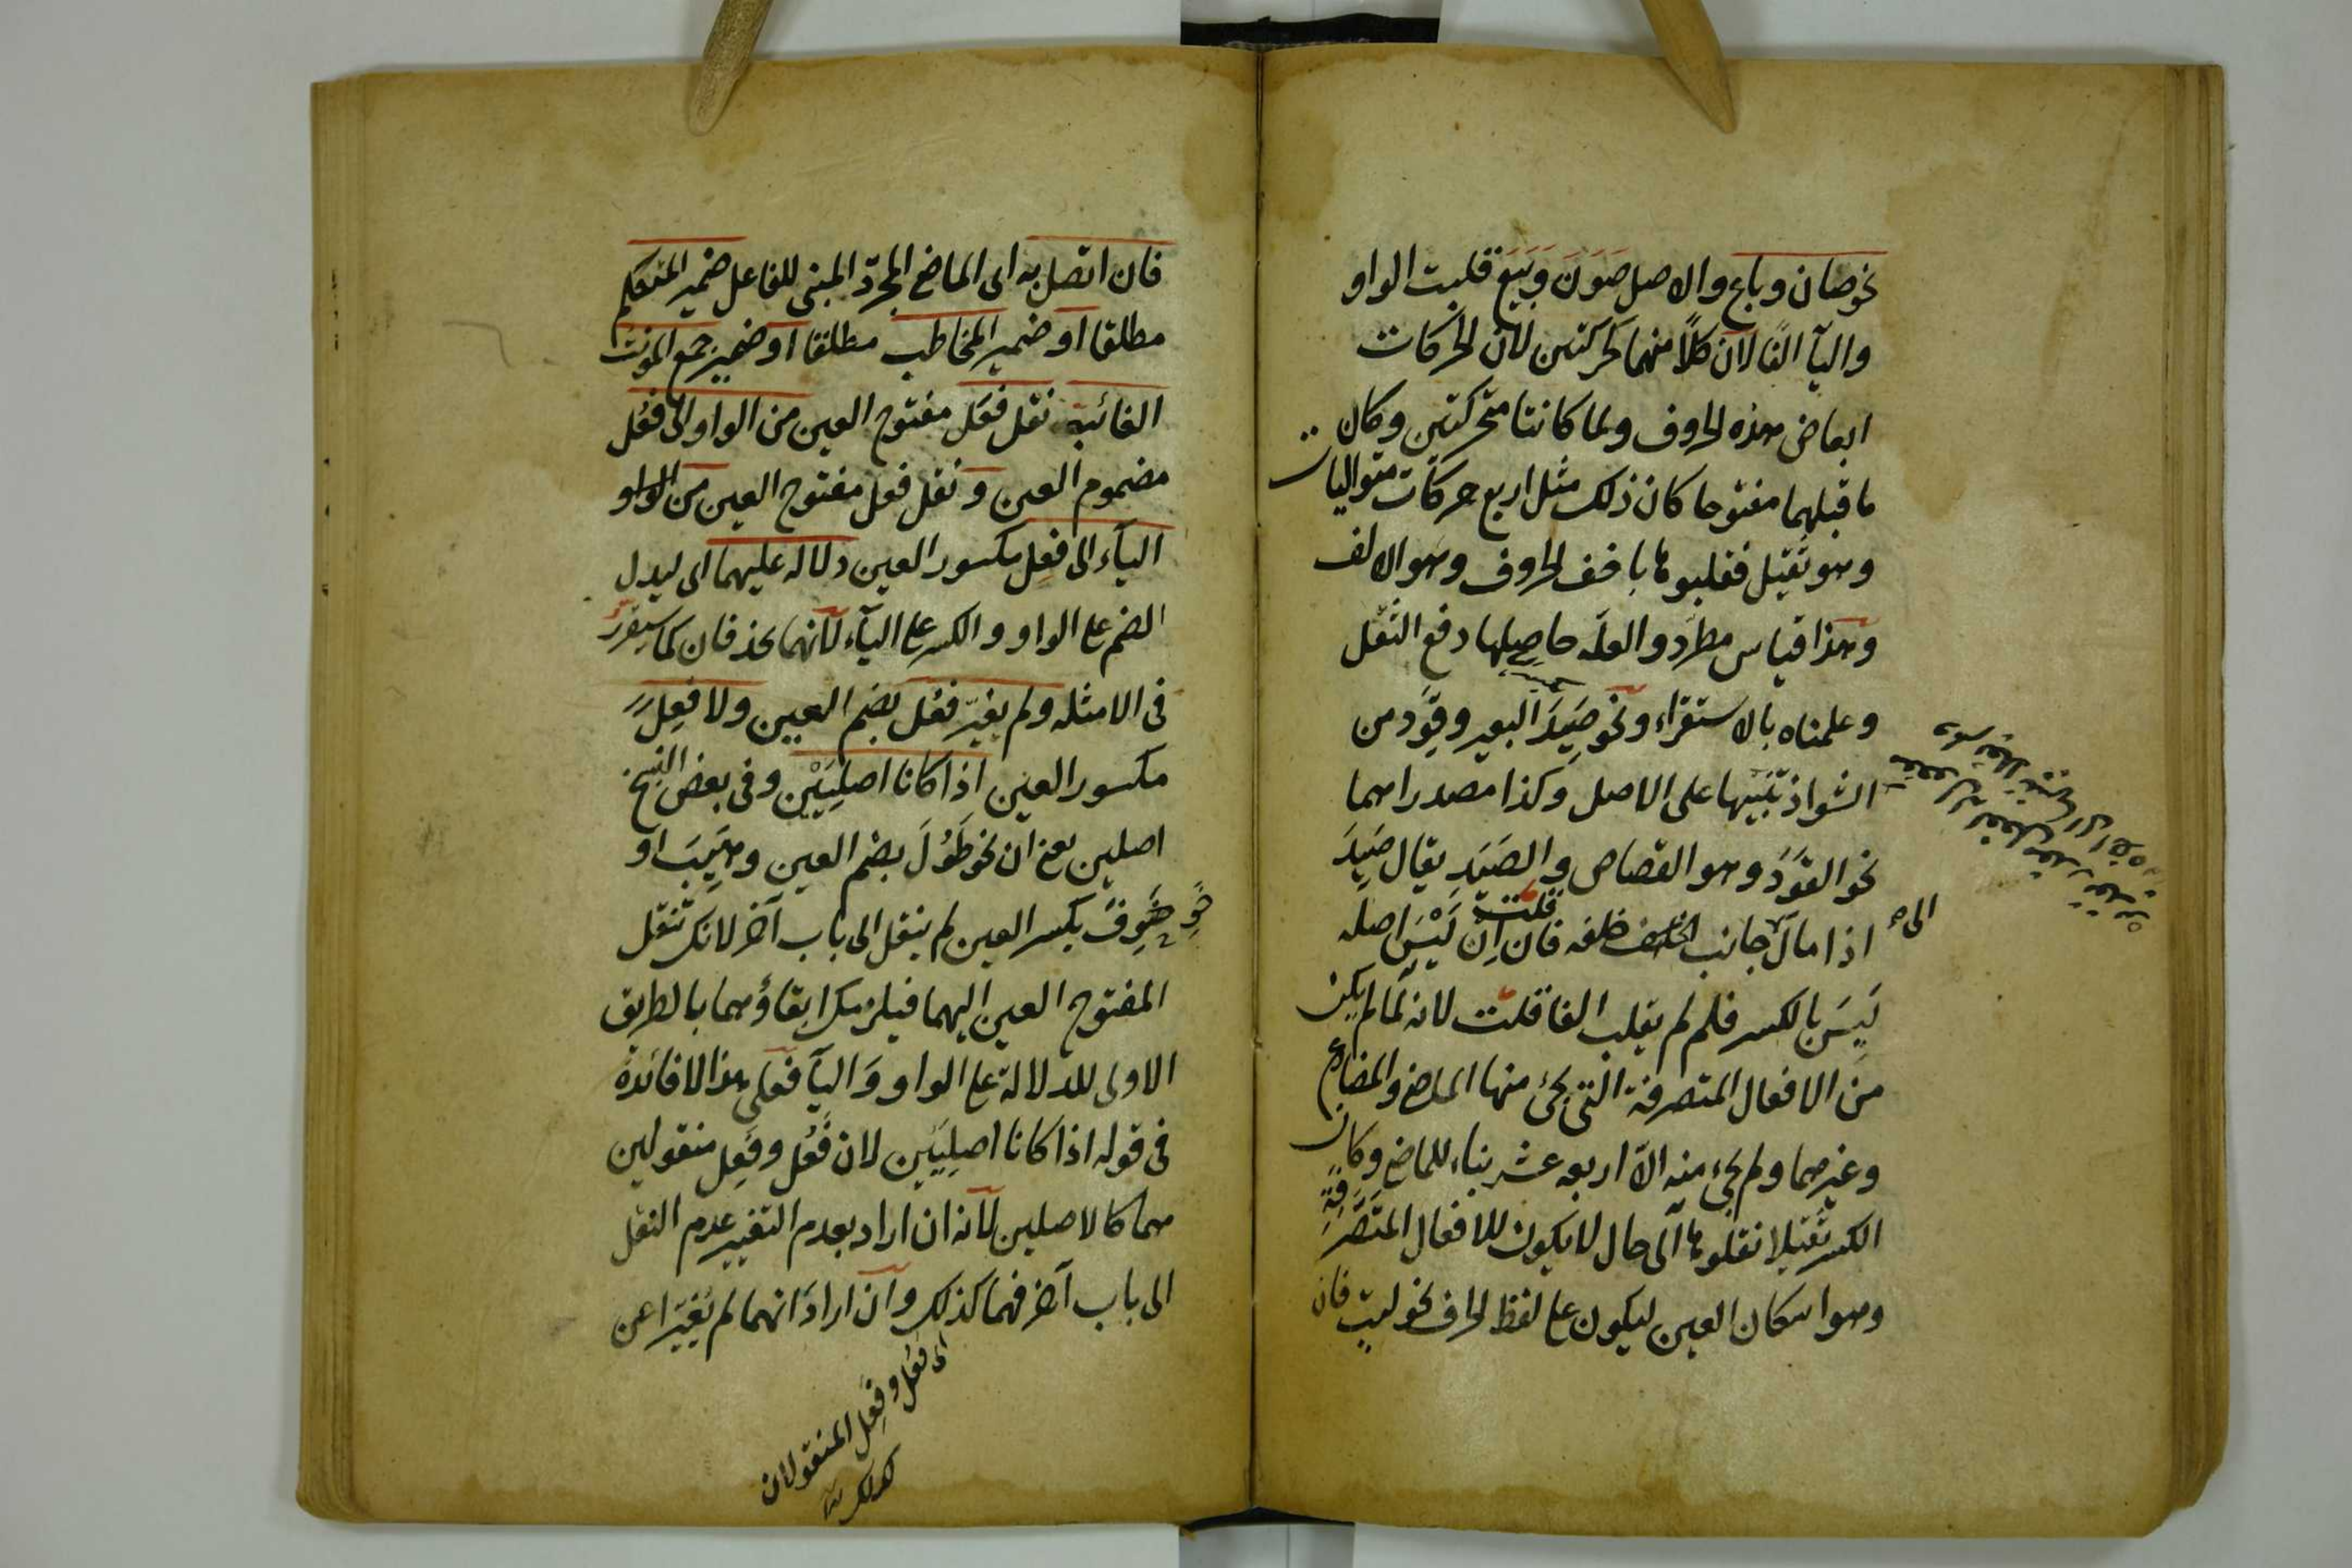 نحو صان وباع والاصل صَوَنَ وبَيَعَ قلبت الواو
واليآ الفًا لانّ كلًّا منهما كحركتين لان الحركات
ابعاض هذه الحروف ولما كانتا متحركتين وكان
ما قبلهما مفتوحا كان ذلك مثل اربع حركات متواليات
وهو ثقيل فقلبوها باخف الحروف وهو الالف
وهذا قياس مطّرد والعلّه حاصلها دفع الثقل
وعلمناه بالاستقراء ونحو صَيِدَ البعير وقَوَد من
الشواذ تنبيها على الاصل وكذا مصدراهما
نحو القَوَدَ وهو القصاص والصَيَدِ يقال صَيِدَ
اذا مال الى جانب خلفه فان قلت اِنّ لَيْسَ اصله
لَيِسَ بالكسر فلم لم يقلب الفا قلت لانه لمّا لم يكن
من الافعال المتصرفة التى يجئ منها الماضى والمضارع
وغيرهما ولم يجئ منه الّا اربعه عشر بناء للماضى وكان
الكسر ثقيلا نقلوها الى حال لا يكون للافعال المتصَرّفةِ
وهو اسكان العين ليكون على لفظ الحرف نحو ليت فان
فان اتصل به اى الماضى المجرّد المبنى للفاعل ضمير المتكلم
مطلقا او ضمير المخاطب مطلقا او ضمير جمع المؤنث
الغائبة نقل فعَل مفتوح العين من الواو الى فعُل
مضموم العين ونقل فعل مفتوح العين من الواو
اليآء الى فعِل مكسور العين دلالة عليهما اى ليدل
الضم على الواو والكسر على اليآء لانّهما يحذفان كما سيقرّر
فى الامثله ولم يغيّر فعُل بضم العين ولا فعِل
مكسور العين اذا كانا اصليّيْن وفى بعض النسخ
اصلين يعنى ان نحو طَوُلَ بضم العين وهَيِبَ او
خَوِفَ بكسر العين لم ينقل الى باب آخر لانك تنقل
المفتوح العين اليهما فيلزمك ابقاؤهما بالطريق
الاولى للدلالة على الواو وَاليآ فعلى هذا لا فائدة
فى قوله اذا كانا اصليّين لان فَعُل وفَعِل منقولين
هما كالاصلين لانّه ان اراد بعدم التغيير عدم النقل
الى باب آخر فهما كذلك وان ارادَ انهما لم يُغيّرا عن
اى فعُل وفعِل المنقولان
كذلك